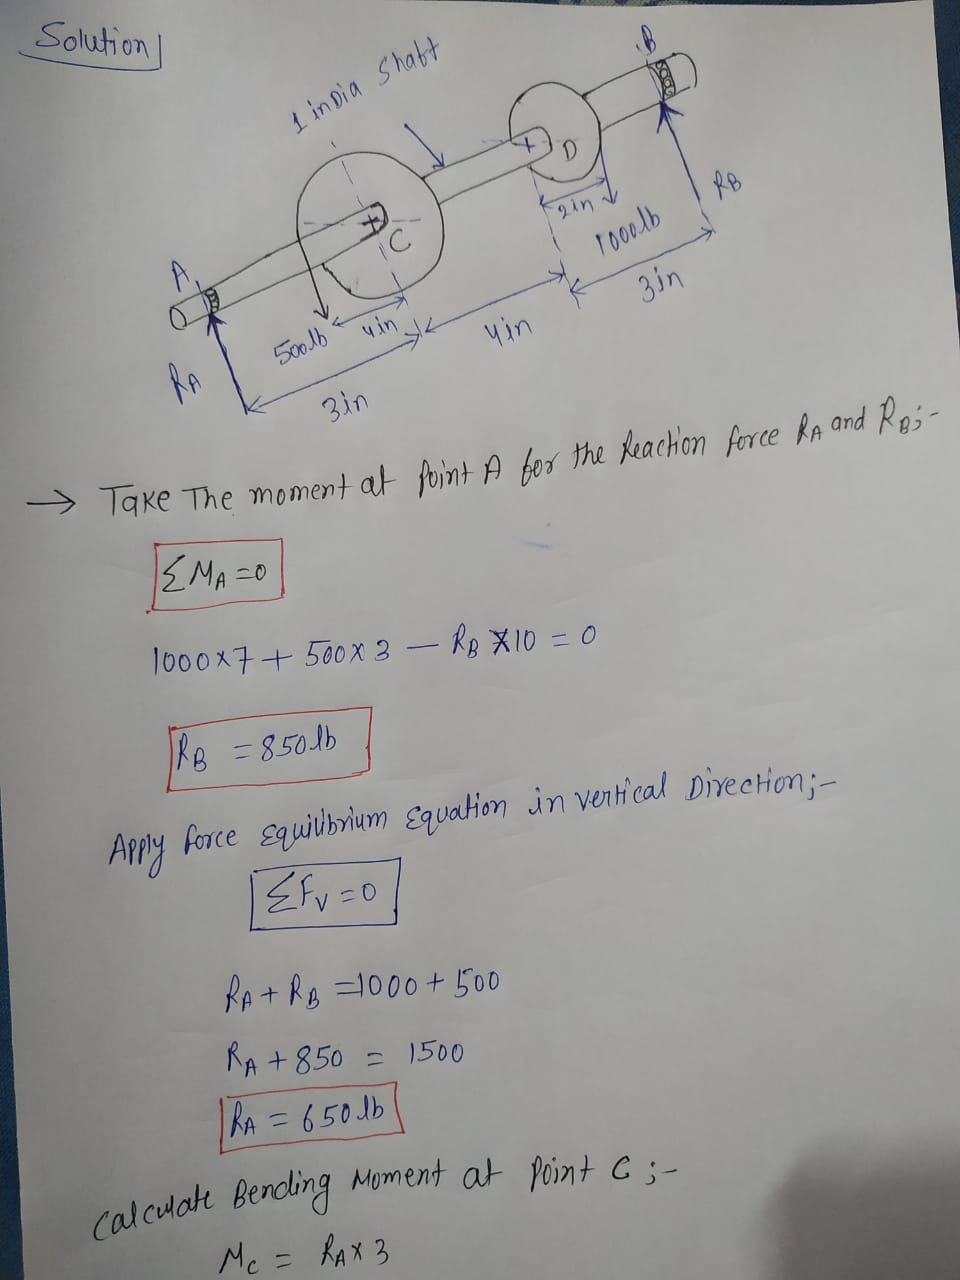 Solution
1 in Dia Shaft
B
D
2in
RB
1000lb
C
A
3in
500lb
4in
4in
RA
3in
→ Take The moment at Point A for the Reaction force RA and RB;-
ΣMA =0
1000×7 + 500×3 – RB ×10 = 0
RB = 850 lb
Apply force Equilibrium Equation in vertical Direction;-
ΣFV =0
RA + RB =1000 + 500
RA + 850 = 1500
RA = 650 lb
Calculate Bending Moment at Point C ;-
MC = RA× 3